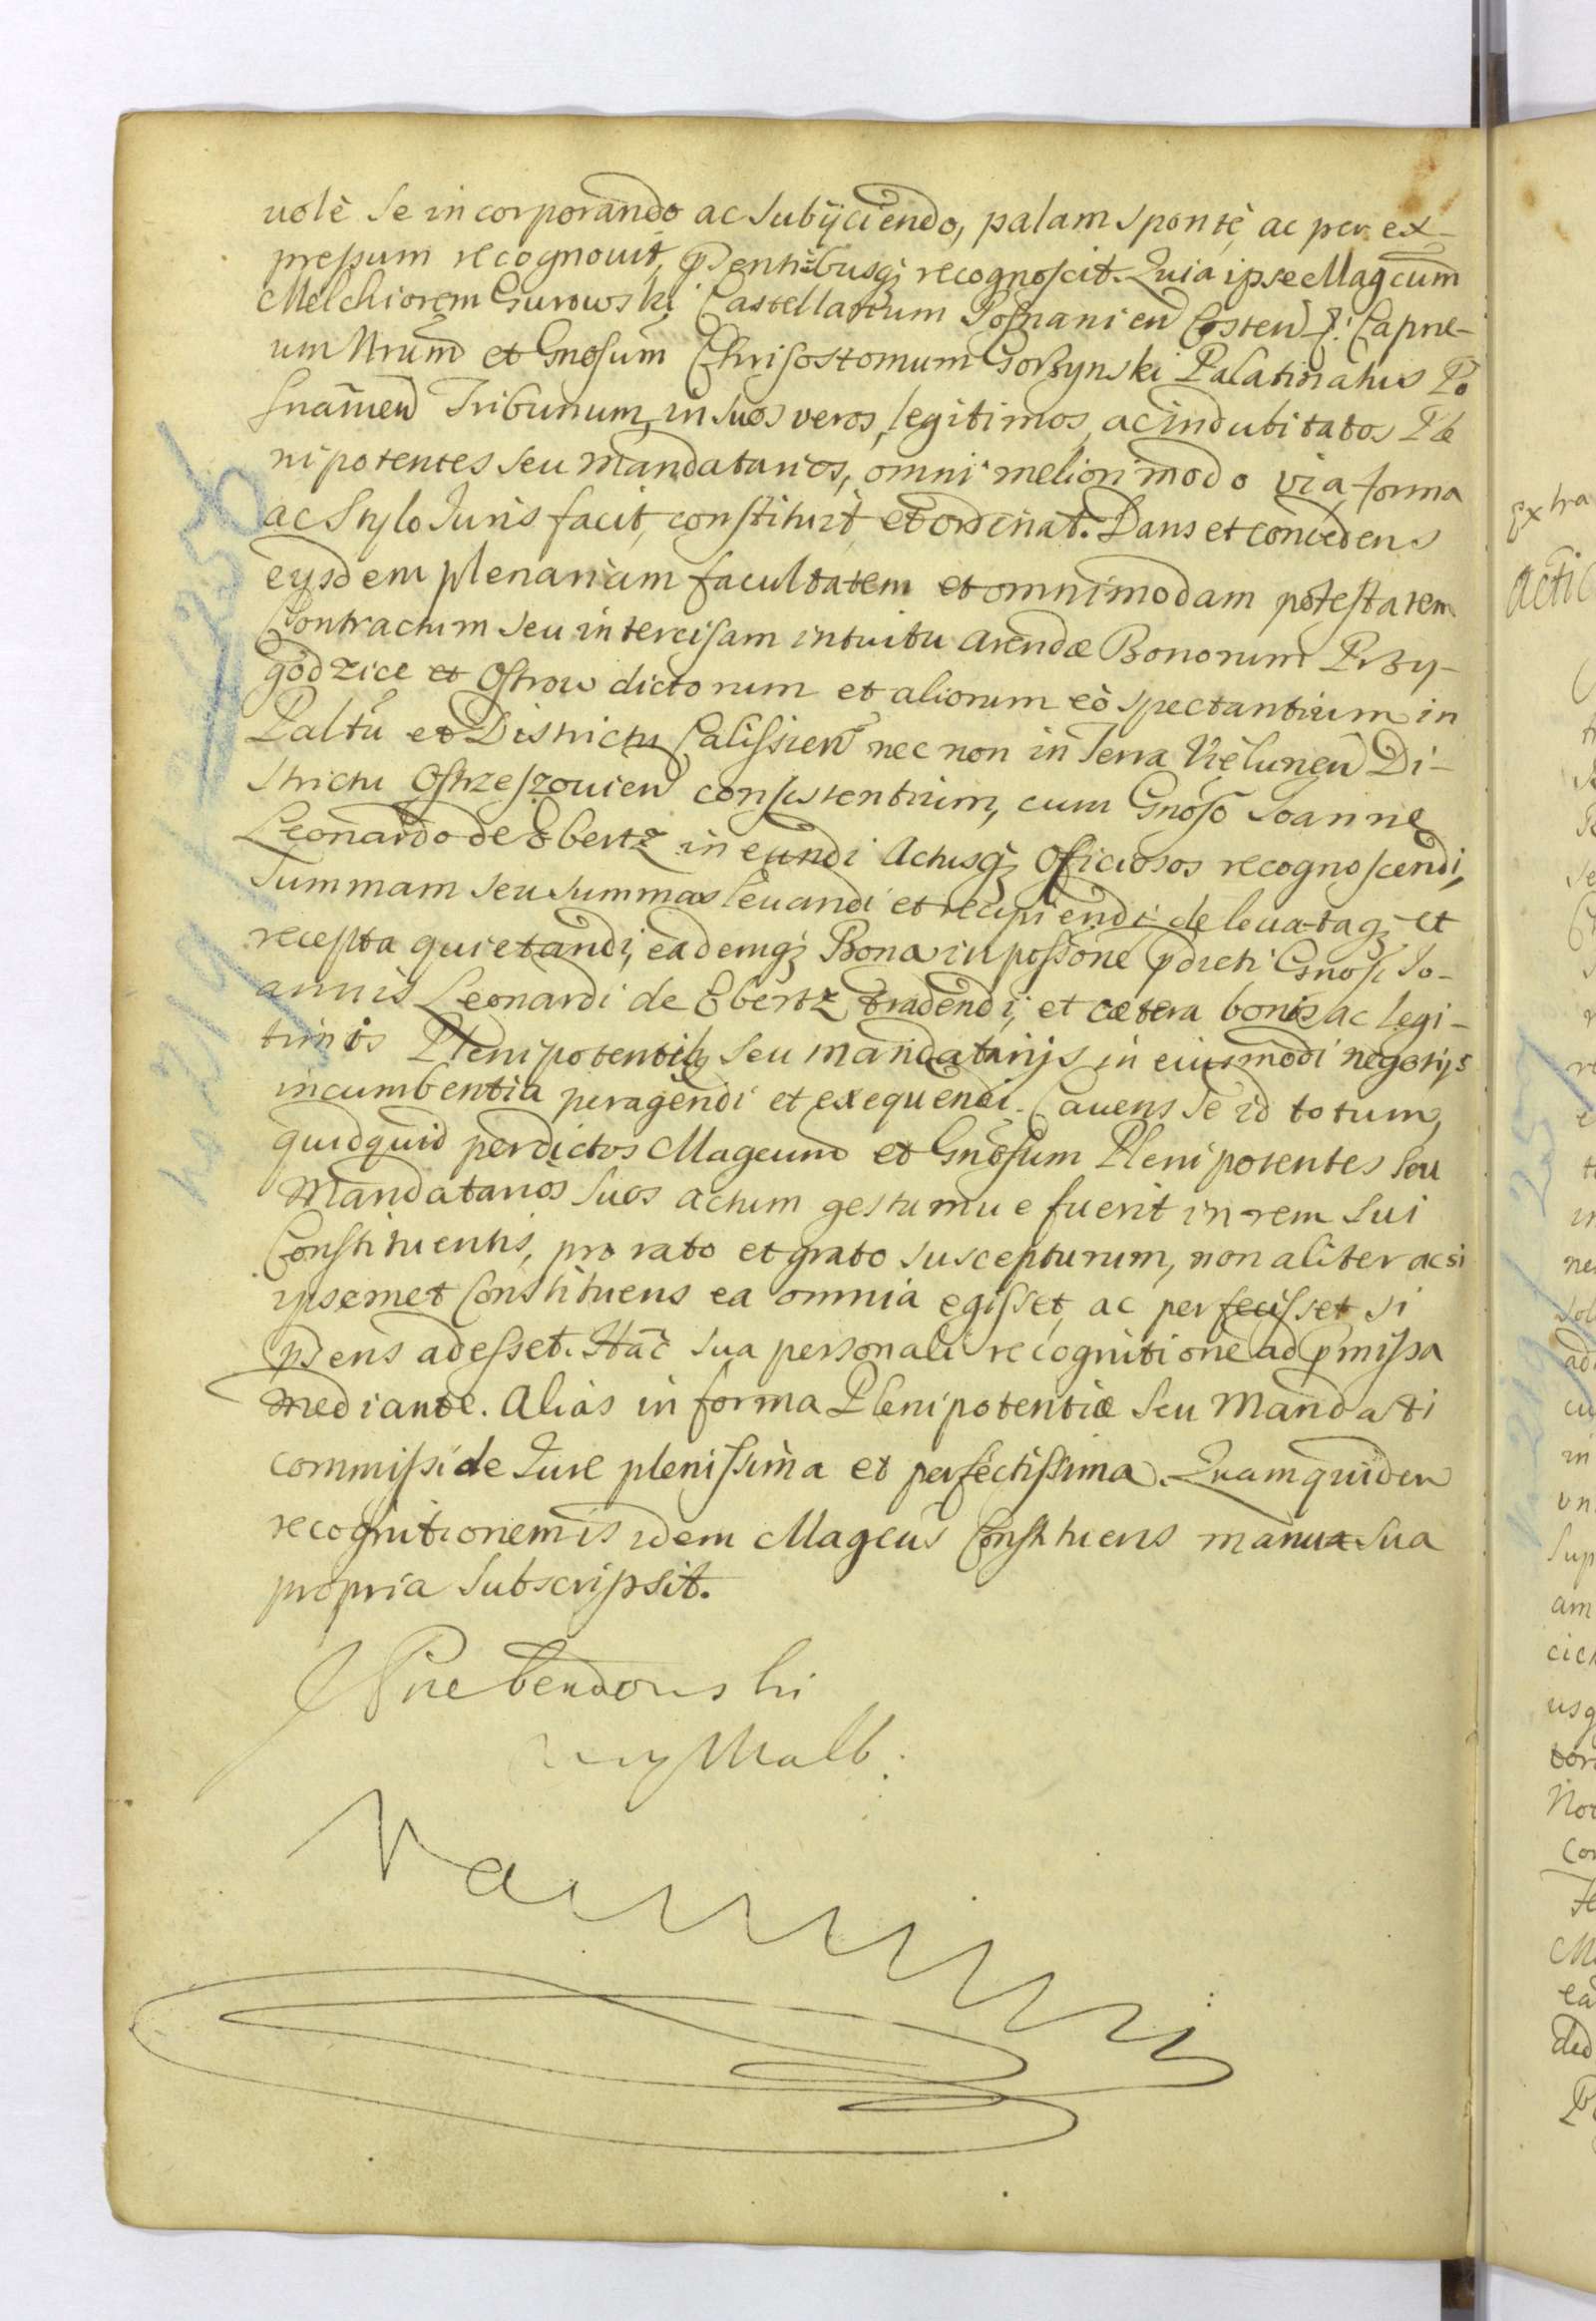 uolè se incorporando ac subijciendo, palam spontè ac per ex-
pressum recognouit, Pdentibusq; recognoscit. Quia ipse Magcum
Melchiorem Gurowski Castellanum Posnanien Costen &: Capne-
um Nrum et Gnosum Chrisostomum Gorzynski Palatinatus Po
snanien Tribunum, in suos veros, legitimos, ac indubitatos Ple
nipotentes seu Mandatarios, omni meliori modo via, forma
ac Stylo Juris facit, constituit et ordinat. Dans et concedens
eysdem plenariam facultatem et omnimodam potestatem
Contractum seu intercisam intuitu arendæ Bonorum Przy-
godzice et Ostrow dictorum et aliorum eò spectantium in
Paltu et Districtu Calissien nec non in Terra Vielunen Di-
strictu Ostrzeszouien consistentium, cum Gnoso Joanne
Leonardo de Ebertz ineundi Actusq; Officiosos recognoscendi,
Summam seu summas leuandi et recipiendi, de leuataq; et
recepta quietandi, eademq; Bona in possone pdicti Gnosi Jo-
annis Leonardi de Ebertz tradendi, et cætera bonis ac legi-
timis Plenipotentibq seu mandatarijs in eiusmodi negotijs
incumbentia peragendi et exequendi. Cauens se id totum,
quidquid per dictos Magcum et Gnosum Plenipotentes seu
Mandatarios suos actum gestumue fuerit in rem sui
Constituentis, pro rato et grato suscepturum, non aliter ac si
ipsemet Constituens ea omnia egisset, ac perfecisset si
pdens adesset. Hac sua personali recognitione ad pmissa
mediante. Alias in forma Plenipotentiæ seu Mandati
commissi de Jure plenissima et perfectissima. Quam quidem
recognitionem is idem Magcus Constituens manu sua
propria subscripsit.
Prebendowski
Malb.